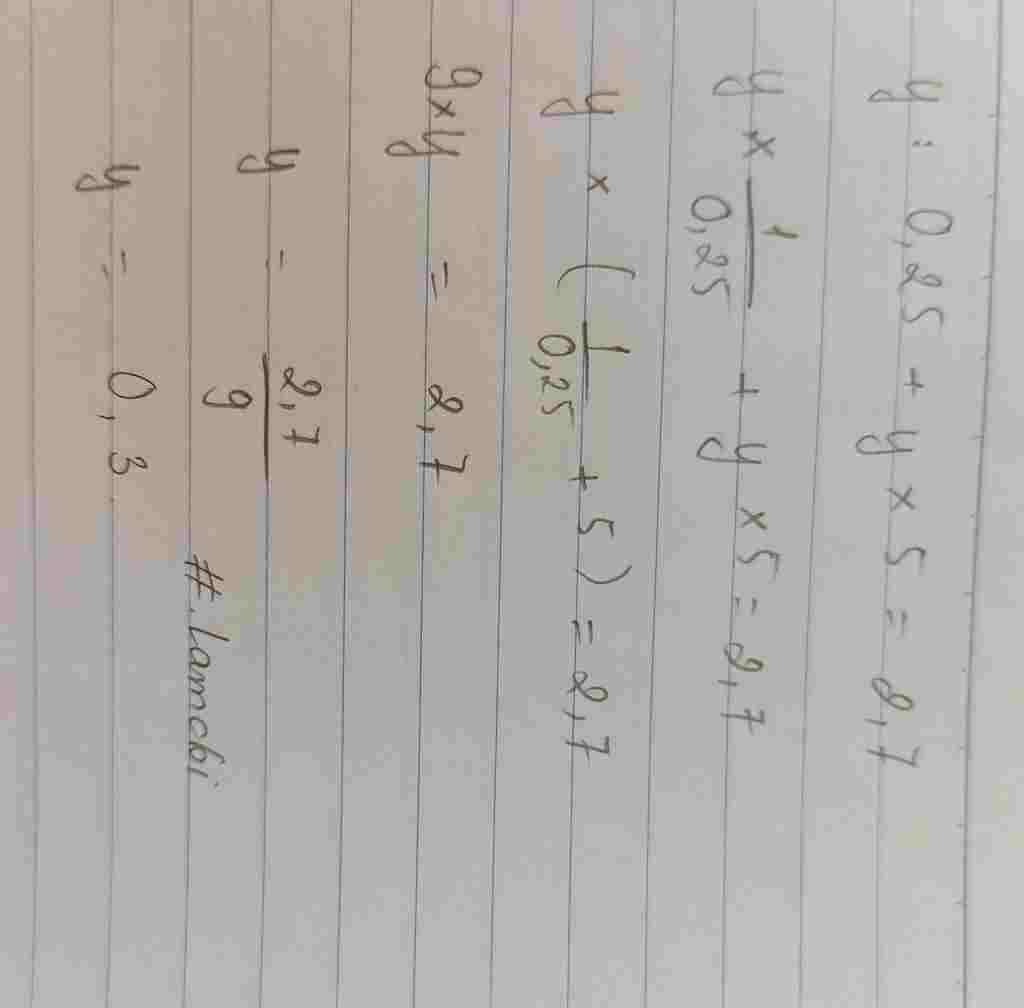 y : 0,25 + y × 5 = 2,7
y × 1/0,25 + y × 5 = 2,7
y × (1/0,25 + 5) = 2,7
9 × y = 2,7
y = 2,7/9
y = 0,3
#.lamchi